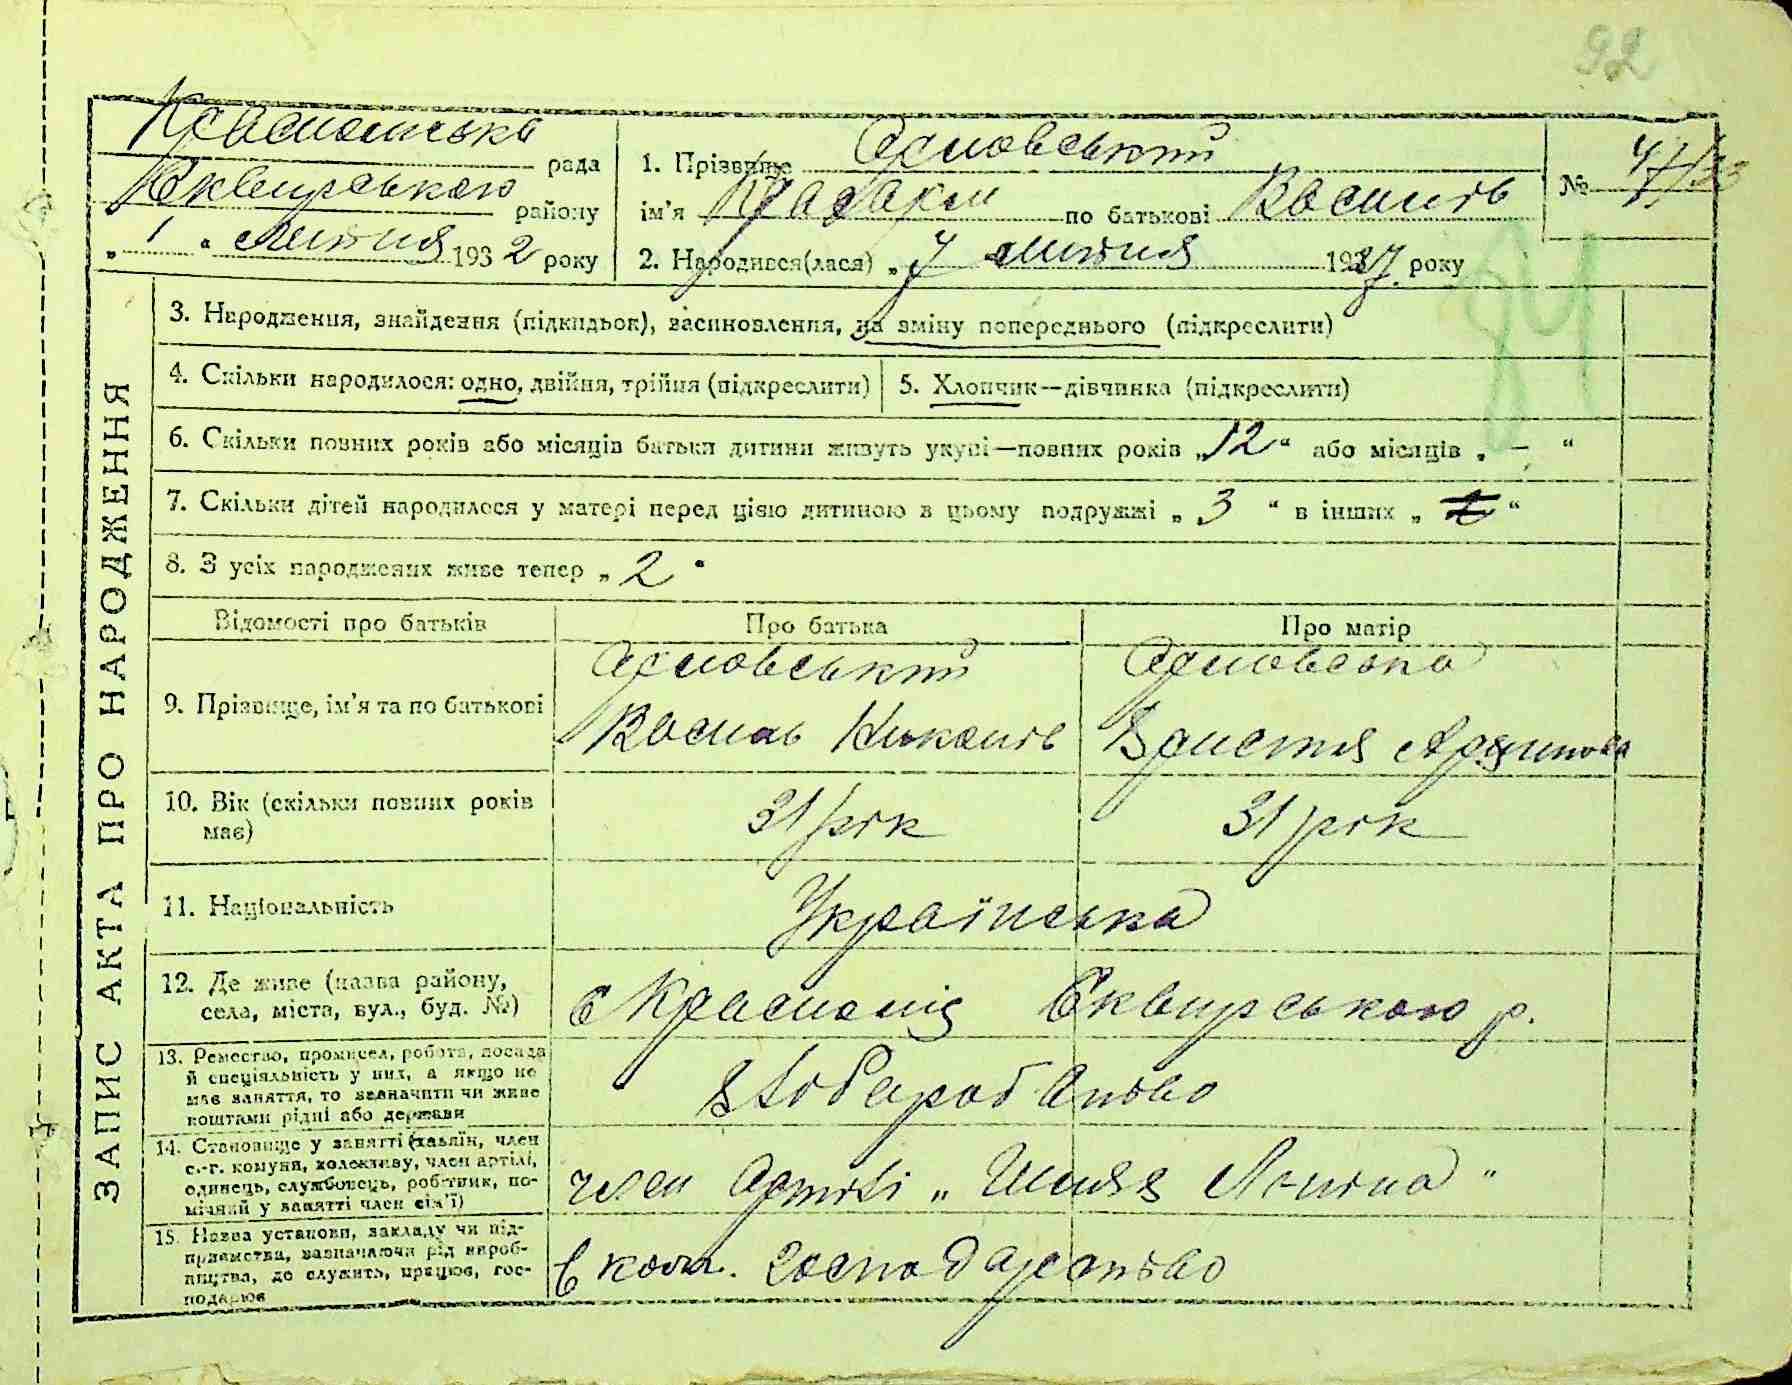 92
Краснолісська рада
Сквирського району
„ 1 “ липня 1932 року
1. Прізвище Осмовський
ім’я по батькові Василів
2. Народився(лася) „ 7 липня 1927 року
№ 7/33
3. Народження, знайдення (підкидьок), засиновлення, на зміну попереднього (підкреслити)
4. Скільки народилося: одно, двійня, трійня (підкреслити)
5. Хлопчик—дівчинка (підкреслити)
6. Скільки повних років або місяців батьки дитини живуть укупі—повних років „12“ або місяців „ – “
7. Скільки дітей народилося у матері перед цією дитиною в цьому подружжі „ 3 “ в інших „ “
8. З усіх народжених живе тепер „ 2 “
ЗАПИС АКТА ПРО НАРОДЖЕННЯ
Відомості про батьків Про батька Про матір
9. Прізвище, ім’я та по батькові
10. Вік (скільки повних років має) 31 рік 31 рік
11. Національність Українська
12. Де живе (назва району, села, міста, вул., буд. №) Сквирського р.
13. Ремество, промисел, робота, посада
й спеціяльність у них, а якщо не
має заняття, то зазначити чи живе
коштами рідні або держави
хліборобство
14. Становище у занятті (хазяїн, член
с.-г. комуни, колективу, член артілі,
одинець, службовець, робітник, по-
мічний у занятті член сім’ї)
член артілі „ Шлях Леніна “
15. Назва установи, закладу чи під-
приємства, зазначаючи рід вироб-
ництва, де служить, працює, гос-
подарює
в кол. господарство